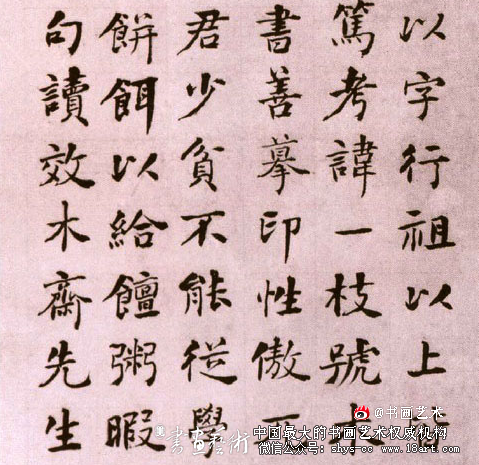 以字行祖以上
篤考諱一枝號
書善摹印性傲
君少貧不能從學
餅餌以給饘粥暇
句讀效木齋先生
@书画艺术
中国最大的书画艺术权威机构
書畫藝術
微信公众号: www.18art.com